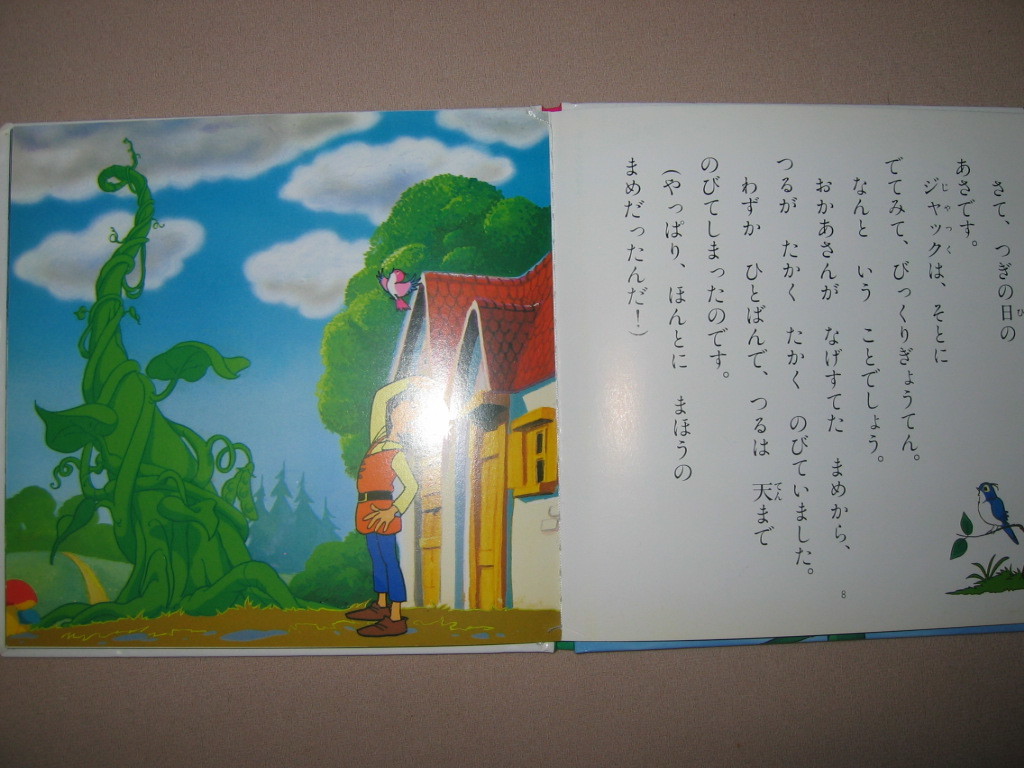 さて、つぎの日の
あさです。
ジャックは、そとに
でてみて、びっくりぎょうてん。
なんと いう ことでしょう。
おかあさんが なげすてた まめから、
つるが たかく たかく のびていました。
わずか ひとばんで、つるは 天まで
のびてしまったのです。
(やっぱり、ほんとに まほうの
まめだったんだ!)
8